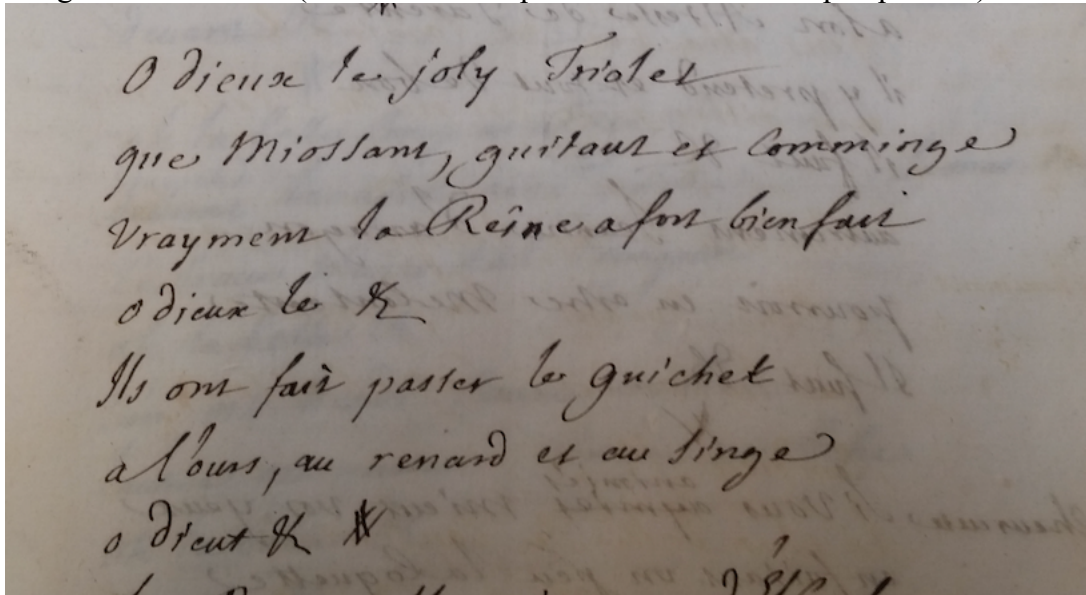 O dieux le joly Triolet
que Miossant, guitaut et Comminge
Vrayment la Reine a fort bien fait
o dieux le &
Ils ont fait passer le guichet
a l'ours, au renard et au singe
o dieux &